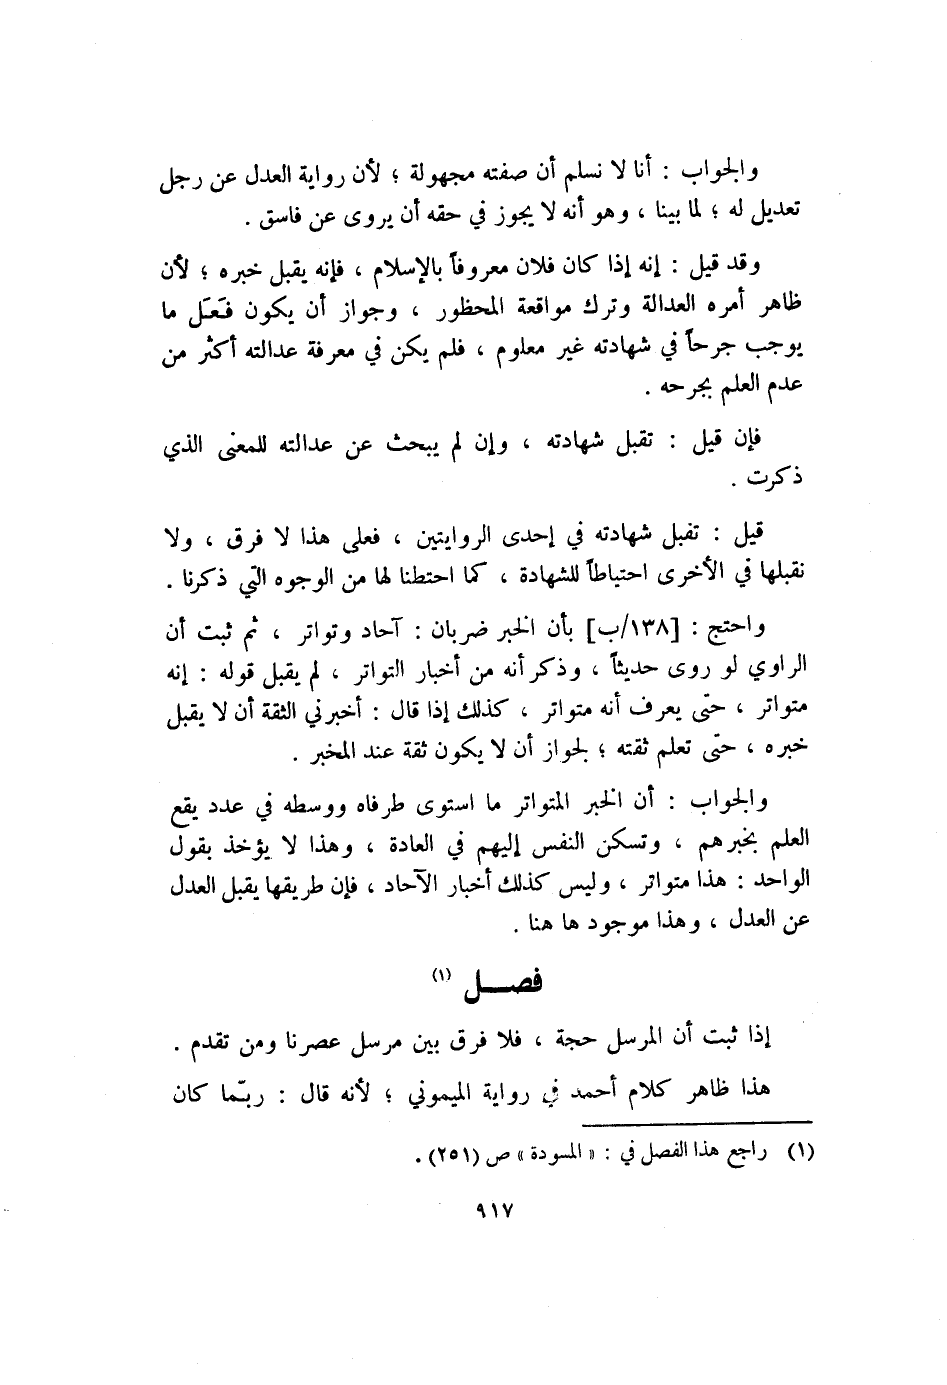 والجواب : أنا لا نسلم أن صفته مجهولة ؛ لأن رواية العدل عن رجل
تعديل له ؛ لما بينا ، وهو أنه لا يجوز في حقه أن يروى عن فاسق .
وقد قيل : إنه إذا كان فلان معروفاً بالإسلام ، فإنه يقبل خبره ؛ لأن
ظاهر أمره العدالة وترك مواقعة المحظور ، وجواز أن يكون فَعَل ما
يوجب جرحاً في شهادته غير معلوم ، فلم يكن في معرفة عدالته أكثر من
عدم العلم بجرحه .
فإن قيل : تقبل شهادته ، وإن لم يبحث عن عدالته للمعنى الذي
ذكرت .
قيل : تفبل شهادته في إحدى الروايتين ، فعلى هذا لا فرق ، ولا
نقبلها في الأخرى احتياطاً للشهادة ، كما احتطنا لها من الوجوه التي ذكرنا .
واحتج : [١٣٨/ب] بأن الخبر ضربان : آحاد وتواتر ، ثم ثبت أن
الراوي لو روى حديثاً ، وذكر أنه من أخبار التواتر ، لم يقبل قوله : إنه
متواتر ، حتّى يعرف أنه متواتر ، كذلك إذا قال : أخبرني الثقة أن لا يقبل
خبره ، حتّى تعلم ثقته ؛ لجواز أن لا يكون ثقة عند المخبر .
والجواب : أن الخبر المتواتر ما استوى طرفاه ووسطه في عدد يقع
العلم بخبرهم ، وتسكن النفس إليهم في العادة ، وهذا لا يؤخذ بقول
الواحد : هذا متواتر ، وليس كذلك أخبار الآحاد ، فإن طريقها يقبل العدل
عن العدل ، وهذا موجود ها هنا .
فصــل (١)
إذا ثبت أن المرسل حجة ، فلا فرق بين مرسل عصرنا ومن تقدم .
هذا ظاهر كلام أحمد في رواية الميموني ؛ لأنه قال : ربّما كان
(١) راجع هذا الفصل في : « المسودة » ص (٢٥١) .
٩١٧